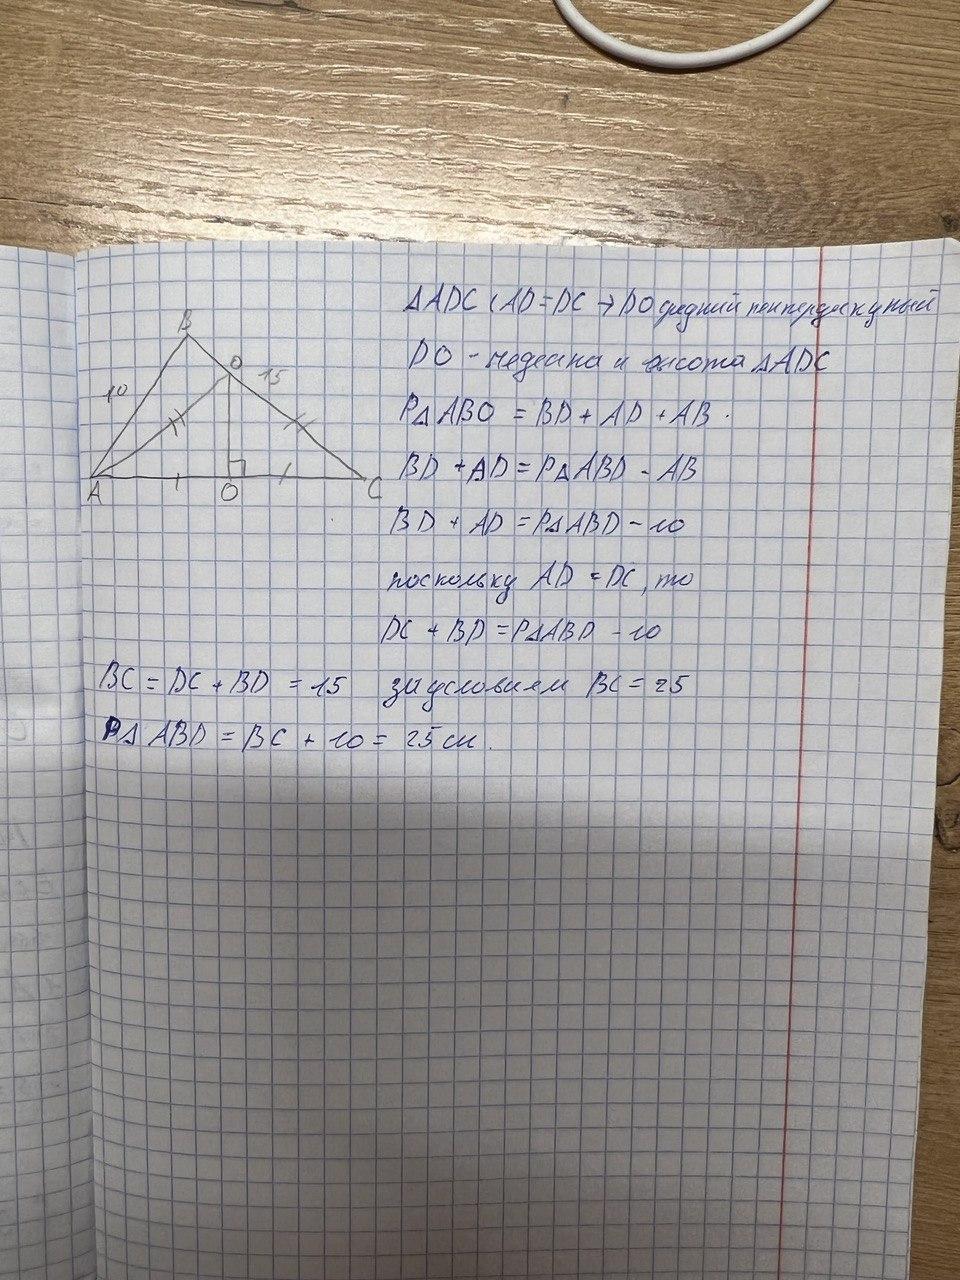 B
10
D 15
A
O
C
ΔADC (AD = DC → DO средний
DO - медеана и высота ΔADC
PΔABO = BD + AD + AB.
BD + AD = PΔABD - AB
BD + AD = PΔABD - 10
поскольку AD = DC, то
DC + BD = PΔABD - 10
BC = DC + BD = 15 за условием BC = 25
PΔ ABD = BC + 10 = 25 см.